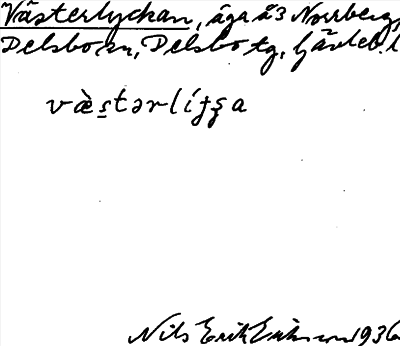 Västerlyckan, äga å 3 Norrberg,
Delsbo sn, Delsbo tg, Gävleb. l
væ̀s̱tərlíʈʂa
Nils Erik Eriksson 1936